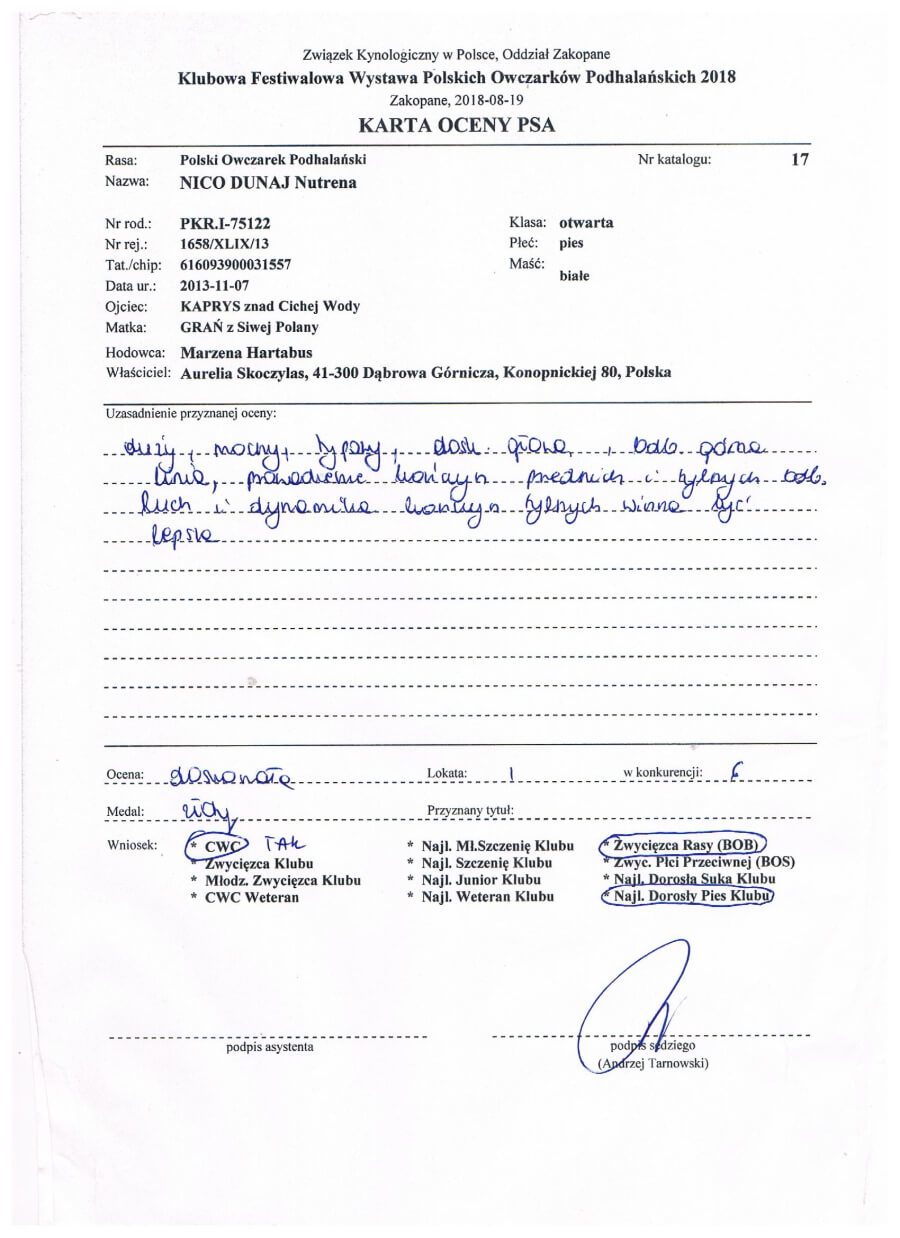 Związek Kynologiczny w Polsce, Oddział Zakopane
Klubowa Festiwalowa Wystawa Polskich Owczarków Podhalańskich 2018
Zakopane, 2018-08-19
KARTA OCENY PSA
Rasa: Polski Owczarek Podhalański Nr katalogu: 17
Nazwa: NICO DUNAJ Nutrena
Nr rod.: PKR.I-75122 Klasa: otwarta
Nr rej.: 1658/XLIX/13 Płeć: pies
Tat./chip: 616093900031557 Maść:
białe
Data ur.: 2013-11-07
Ojciec: KAPRYS znad Cichej Wody
Matka: GRAŃ z Siwej Polany
Hodowca: Marzena Hartabus
Właściciel: Aurelia Skoczylas, 41-300 Dąbrowa Górnicza, Konopnickiej 80, Polska
Uzasadnienie przyznanej oceny:
duży, mocny, typowy, dosk. głowa, , bdb górna
linia, prowadzenie kończyn przednich i tylnych bdb.
Ruch i dynamika kończyn tylnych winna być
lepsza
Ocena: doskonała Lokata: 1 w konkurencji: 6
Medal: złoty Przyznany tytuł:
Wniosek: * CWC TAK * Najl. Mł.Szczenię Klubu * Zwycięzca Rasy (BOB)
* Zwycięzca Klubu * Najl. Szczenię Klubu * Zwyc. Płci Przeciwnej (BOS)
* Młodz. Zwycięzca Klubu * Najl. Junior Klubu * Najl. Dorosła Suka Klubu
* CWC Weteran * Najl. Weteran Klubu * Najl. Dorosły Pies Klubu
podpis asystenta podpis sędziego
(Andrzej Tarnowski)